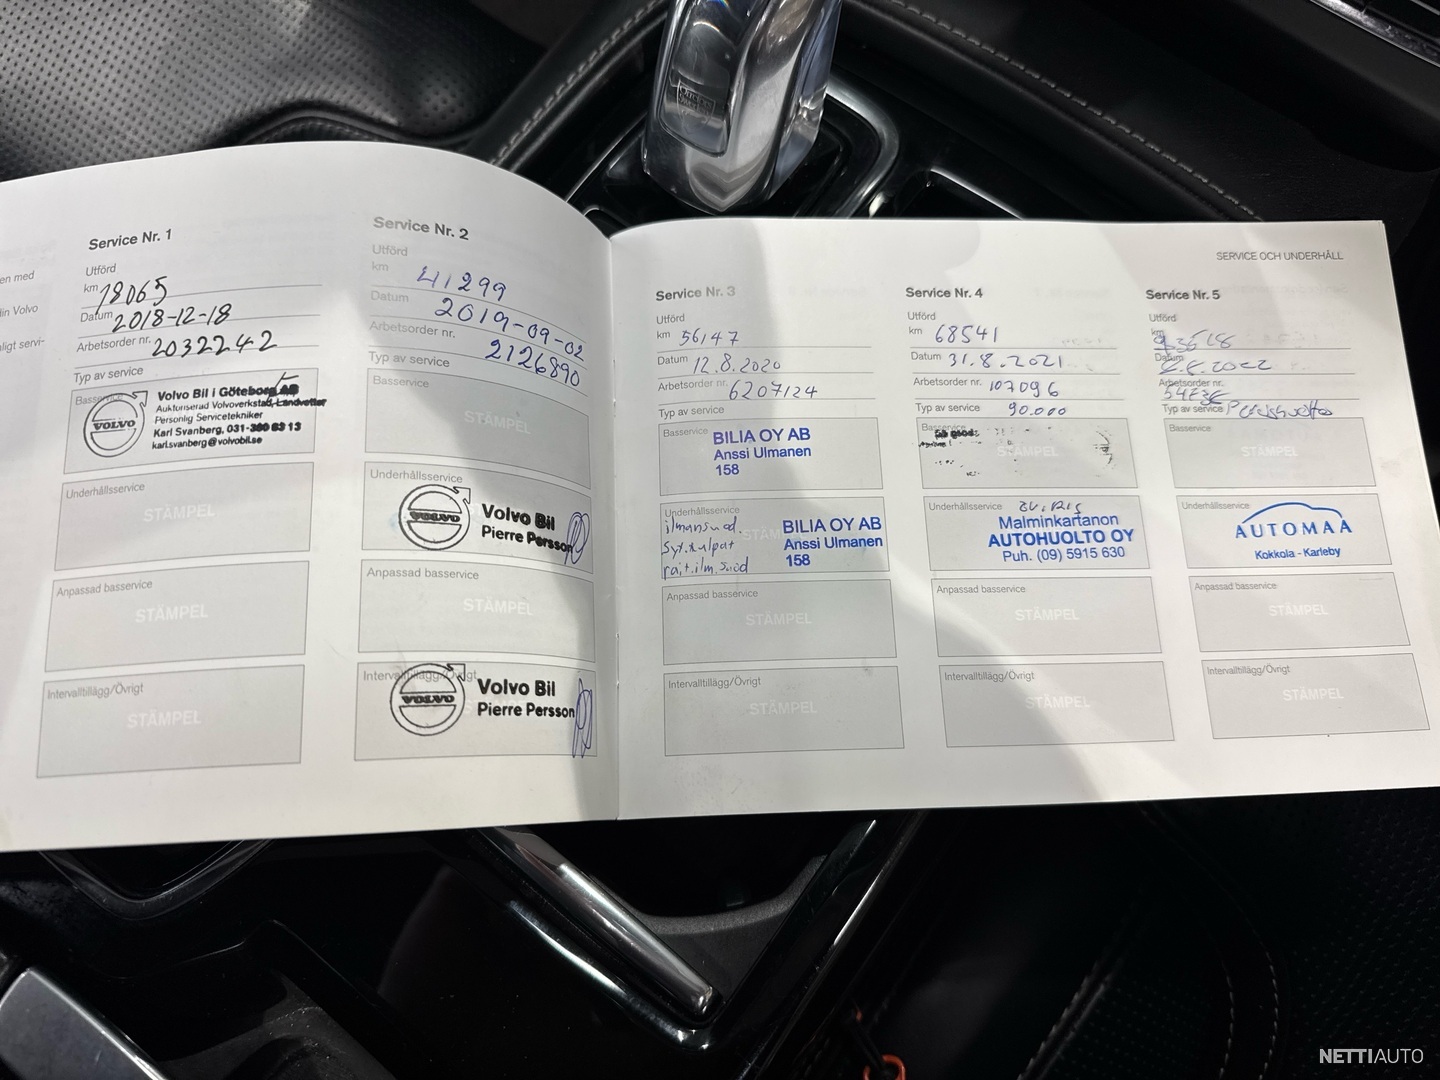 en med
lin Volvo
nligt servi-
Service Nr. 1
Utförd
km 18065
Datum 2018-12-18
Arbetsorder nr. 2032242
Typ av service
Basservice
VOLVO
Volvo Bil i Göteborg AB
Auktoriserad Volvoverkstad, Landvetter
Personlig Servicetekniker
Karl Svanberg, 031-380 63 13
karl.svanberg@volvobil.se
Underhållsservice
STÄMPEL
Anpassad basservice
STÄMPEL
Intervalltillägg/Övrigt
STÄMPEL
Service Nr. 2
Utförd
km 41299
Datum 2019-09-02
Arbetsorder nr. 2126890
Typ av service
Basservice
STÄMPEL
Underhållsservice
VOLVO
Volvo Bil
Pierre Persson
Anpassad basservice
STÄMPEL
Intervalltillägg/Övrigt
VOLVO
Volvo Bil
Pierre Persson
SERVICE OCH UNDERHÅLL
Service Nr. 3
Utförd
km 56147
Datum 12.8.2020
Arbetsorder nr. 6207124
Typ av service
Basservice
BILIA OY AB
Anssi Ulmanen
158
Underhållsservice
ilmansuod.
Syt.tulpat
rait.ilm.suod
STÄMPEL
BILIA OY AB
Anssi Ulmanen
158
Anpassad basservice
STÄMPEL
Intervalltillägg/Övrigt
STÄMPEL
Service Nr. 4
Utförd
km 68541
Datum 31.8.2021
Arbetsorder nr. 107096
Typ av service 90.000
Basservice
STÄMPEL
Underhållsservice
Malminkartanon
AUTOHUOLTO OY
Puh. (09) 5915 630
Anpassad basservice
STÄMPEL
Intervalltillägg/Övrigt
STÄMPEL
Service Nr. 5
Utförd
km
Datum
Arbetsorder nr.
Typ av service Perushuolto
Basservice
STÄMPEL
Underhållsservice
AUTOMAA
Kokkola - Karleby
Anpassad basservice
STÄMPEL
Intervalltillägg/Övrigt
STÄMPEL
NETTIAUTO